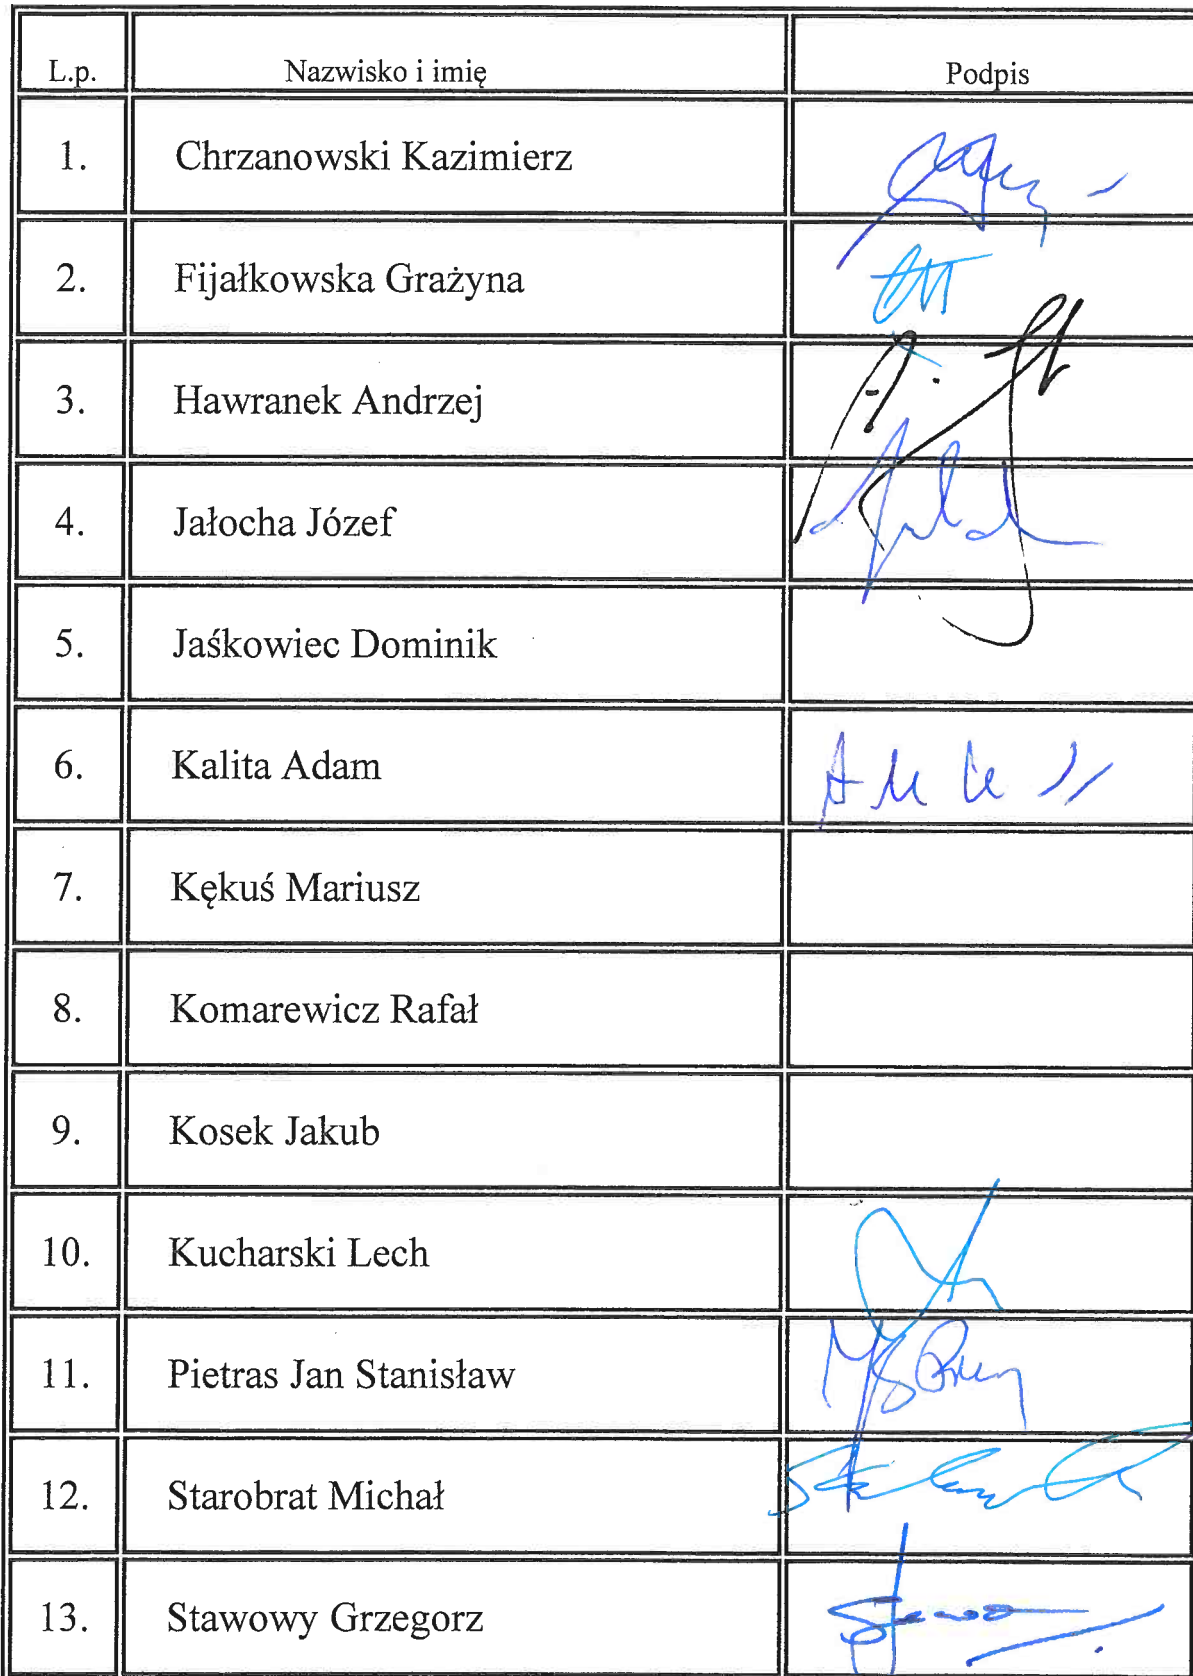 L.p. Nazwisko i imię Podpis
1. Chrzanowski Kazimierz
2. Fijałkowska Grażyna
3. Hawranek Andrzej
4. Jałocha Józef
5. Jaśkowiec Dominik
6. Kalita Adam
7. Kękuś Mariusz
8. Komarewicz Rafał
9. Kosek Jakub
10. Kucharski Lech
11. Pietras Jan Stanisław
12. Starobrat Michał
13. Stawowy Grzegorz